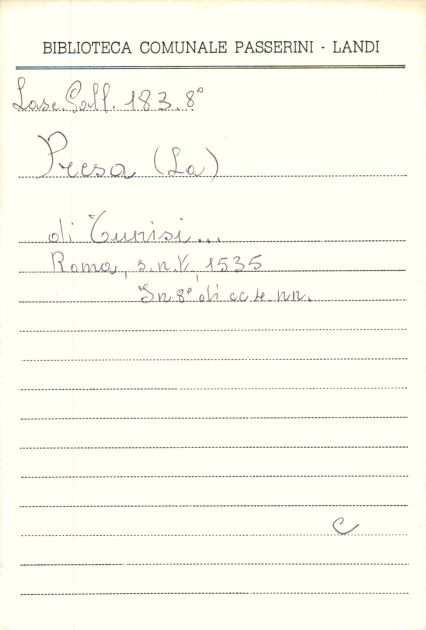 BIBLIOTECA COMUNALE PASSERINI - LANDI
Lasc. Gall. 183. 8°
Presa (La)
di Tunisi...
Roma, s.n.t., 1535
In 8° di cc 4 nn.
C